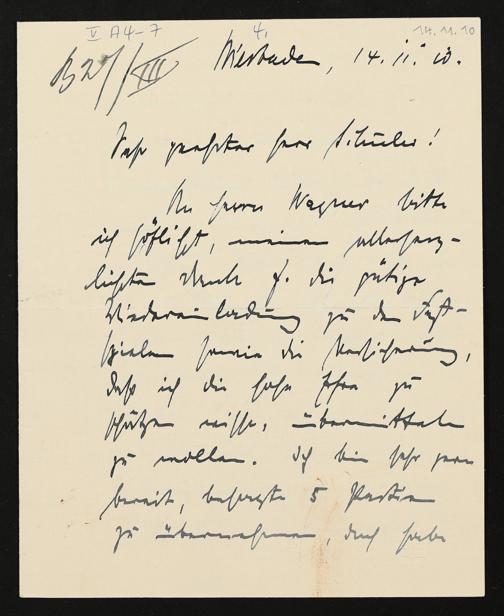 V A4-7
4.
14.11.10
B27/VIII
Wiesbaden, 14.11.10.
Sehr geehrter Herr Schuler!
An Herrn Wagner bitte
ich höflichst, meinen allerherz-
lichsten Dank f. die gütige
Wiedereinladung zu den Fest-
spielen sowie die Versicherung,
daß ich die hohe Ehre zu
schätzen wisse, übermitteln
zu wollen. Ich bin sehr gern
bereit, besagte 5 Partien
zu übernehmen, doch habe